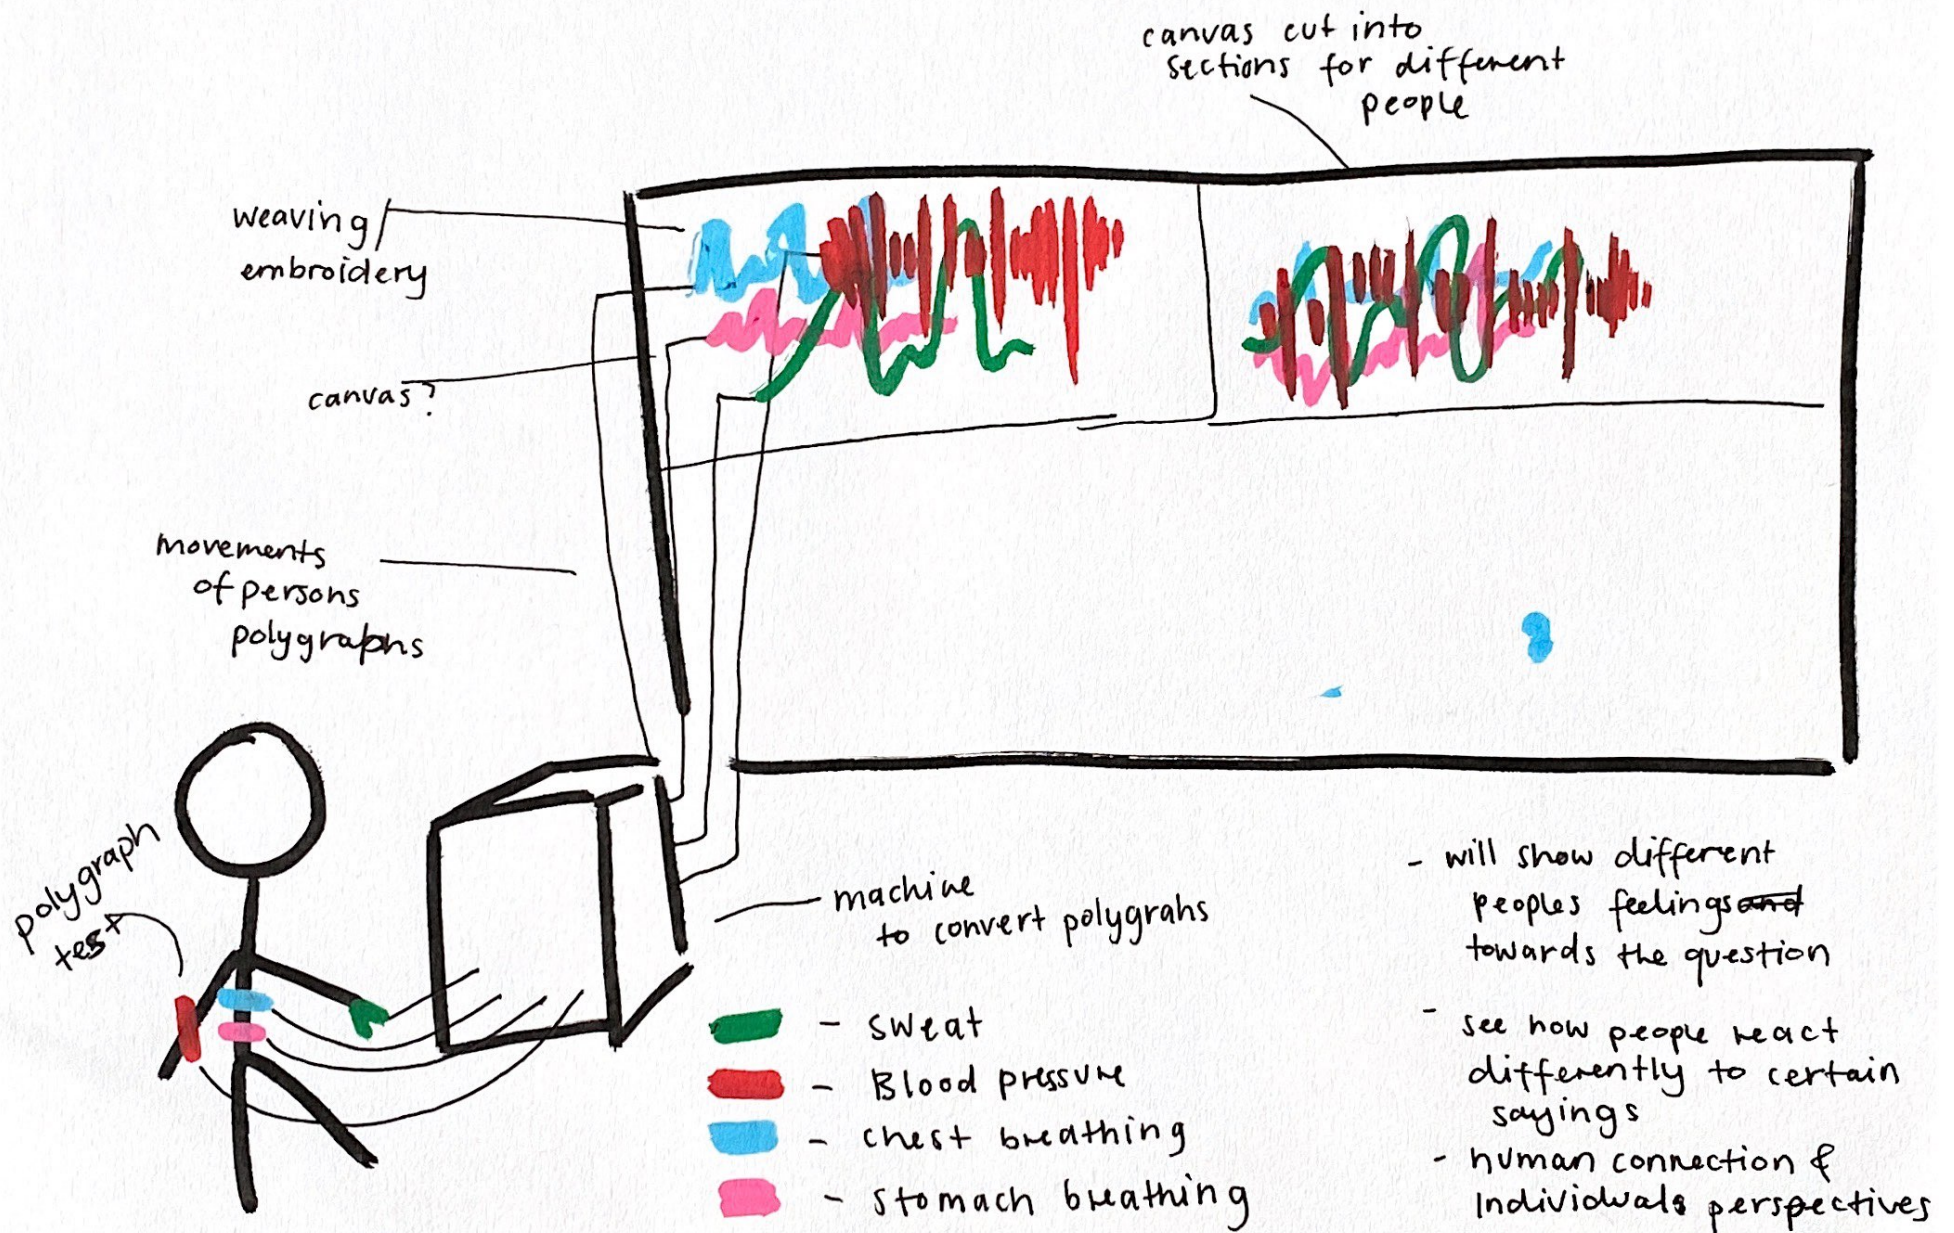 canvas cut into
sections for different
people
weaving/
embroidery
canvas?
movements
of persons
polygraphs
polygraph
test
machine
to convert polygrahs
- sweat
- Blood pressure
- chest breathing
- stomach breathing
- will show different
peoples feelings and
towards the question
- see how people react
differently to certain
sayings
- human connection &
Individuals perspectives